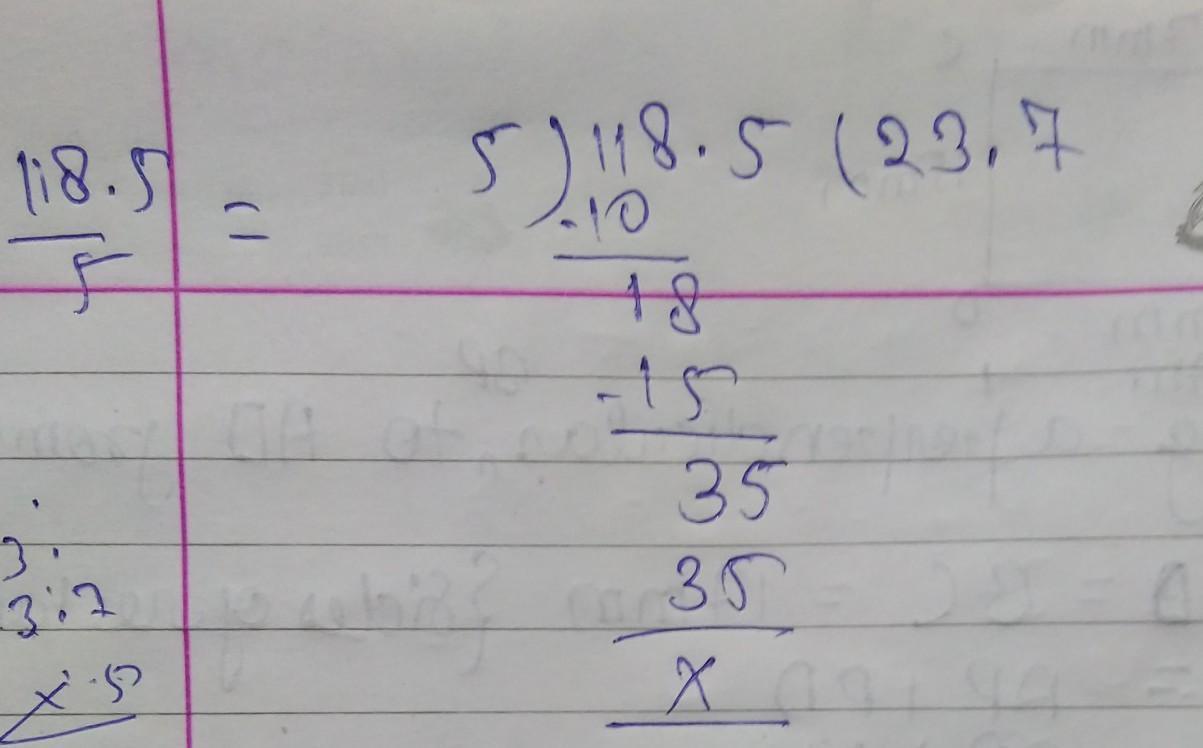 118.5 / 5 = 5)118.5(23.7
-10
18
-15
35
35
x
3.
3.7
x.5